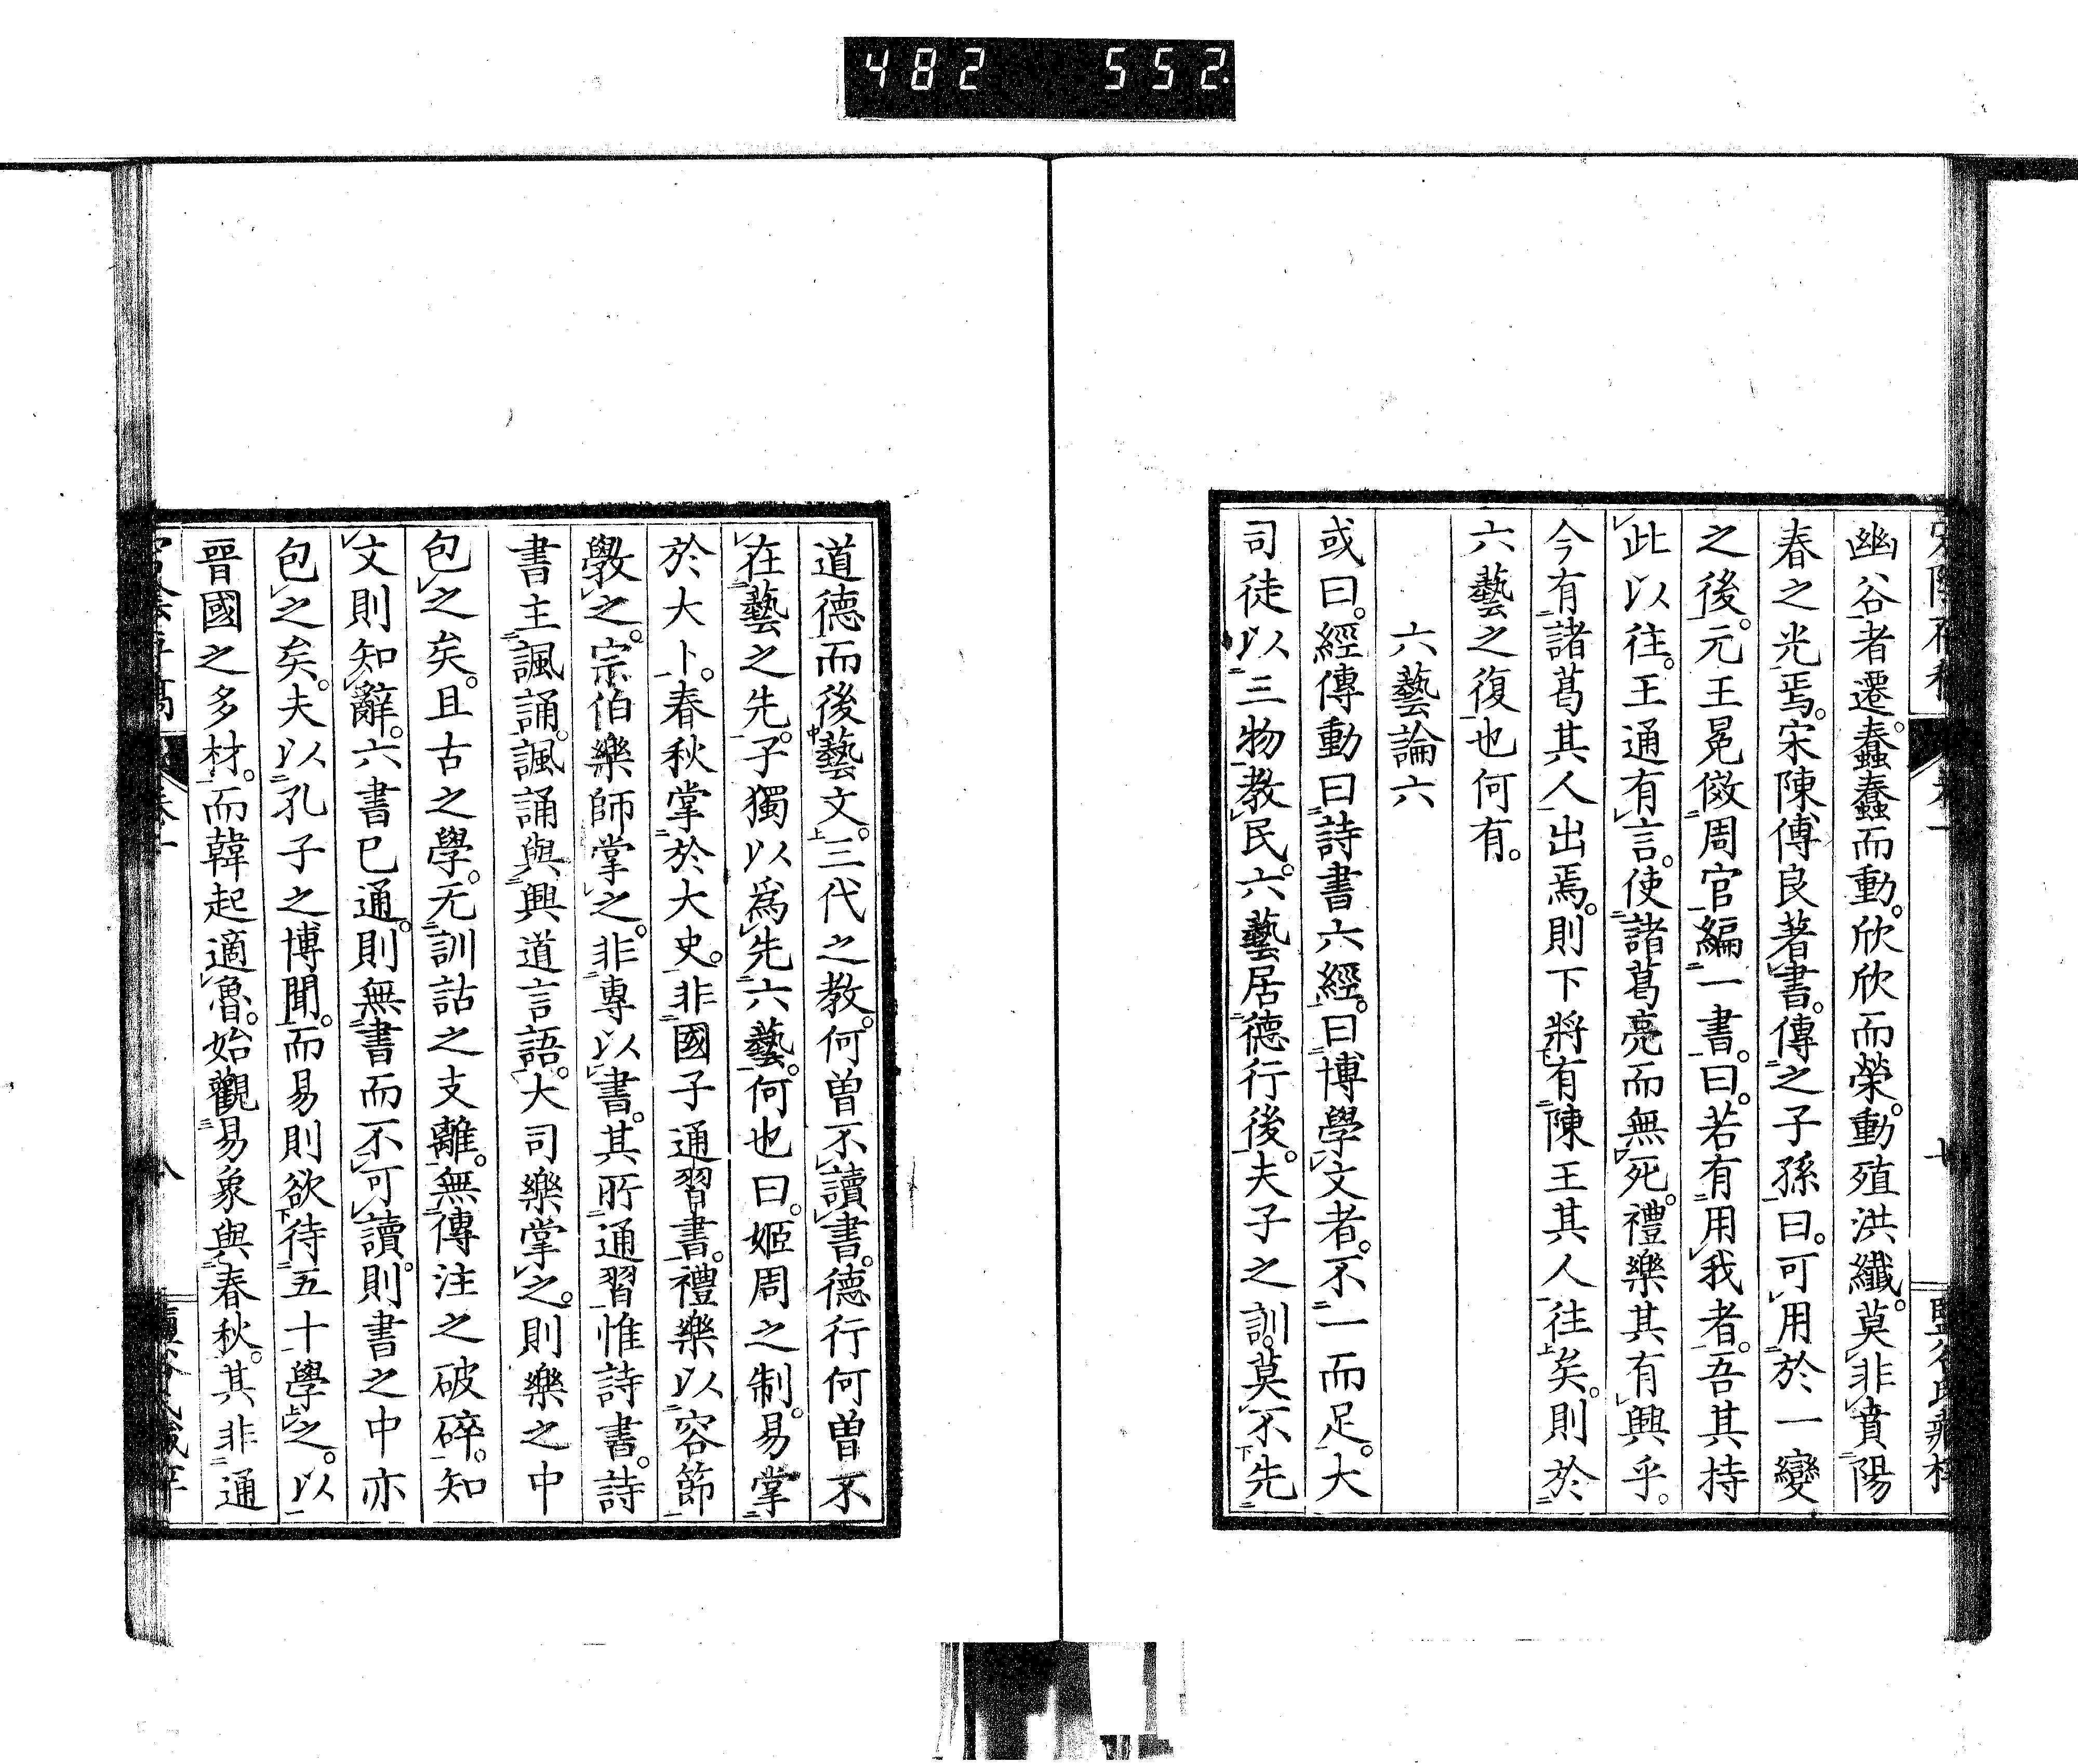 482 552
幽谷者遷。蠢蠢而動。欣欣而榮。動殖洪纖。莫非賁陽
春之光焉。宋陳傅良著書。傳之子孫。曰。可用於一變
之後。元王冕倣周官編一書。曰。若有用我者。吾其持
此以往。王通有言。使諸葛亮而無死。禮樂其有興乎。
今有諸葛其人出焉。則下將有陳王其人往矣。則於
六藝之復也何有。
六藝論六
或曰。經傳動曰詩書六經。曰博學文者。不一而足。大
司徒以三物教民。六藝居德行後。夫子之訓。莫不先
道德而後藝文。三代之教。何曾不讀書。德行何曾不
在藝之先。子獨以爲先六藝。何也曰。姬周之制。易掌
於大卜。春秋掌於大史。非國子通習書。禮樂以容節
斆之。宗伯樂師掌之。非專以書。其所通習惟詩書。詩
書主諷誦。諷誦與興道言語。大司樂掌之。則樂之中
包之矣。且古之學。无訓詁之支離。無傳注之破碎。知
文則知辭。六書已通。則無書而不可讀。則書之中亦
包之矣。夫以孔子之博聞。而易則欲待五十學之。以
晉國之多材。而韓起適魯。始觀易象與春秋。其非通